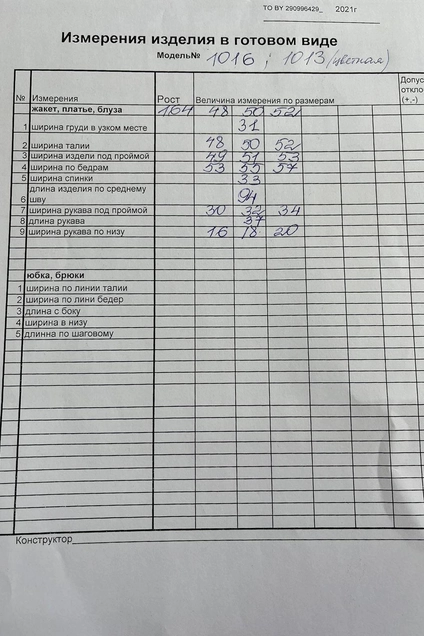 ТО BY 290996429_ 2021г
Измерения изделия в готовом виде
Модель№ 1016 ; 1013 /цветная)
№ Измерения Рост Величина измерения по размерам Допус откло (+,-)
жакет, платье, блуза 164 48 50 52
1 ширина груди в узком месте 31
2 ширина талии 48 50 52
3 ширина издели под проймой 49 51 53
4 ширина по бедрам 53 55 57
5 ширина спинки 33
6 длина изделия по среднему шву 94
7 ширина рукава под проймой 30 32 34
8 длина рукава 37
9 ширина рукава по низу 16 18 20
юбка, брюки
1 ширина по линии талии
2 ширина по лини бедер
3 длина с боку
4 ширина в низу
5 длинна по шаговому
Конструктор